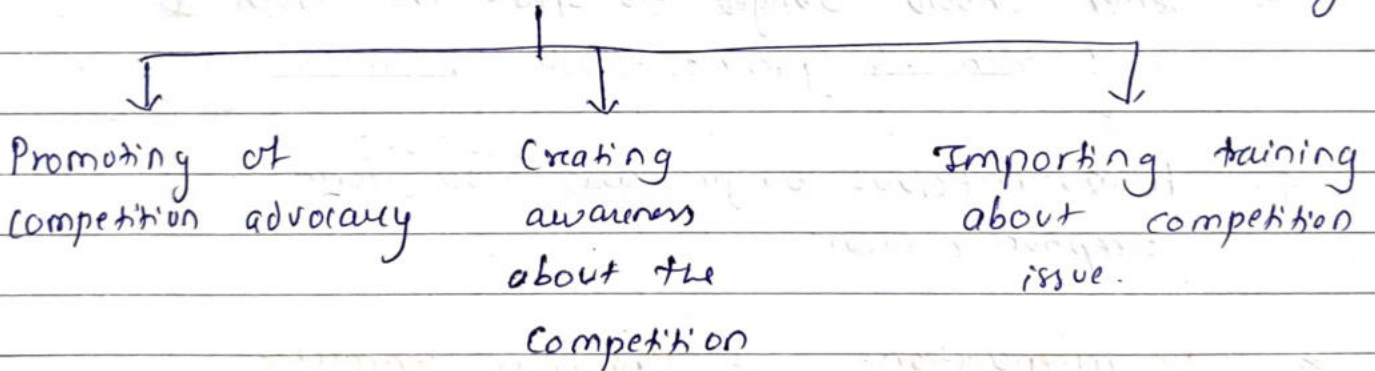 Promoting of competition advocacy
Creating awareness about the Competition
Importing training about competition issue.